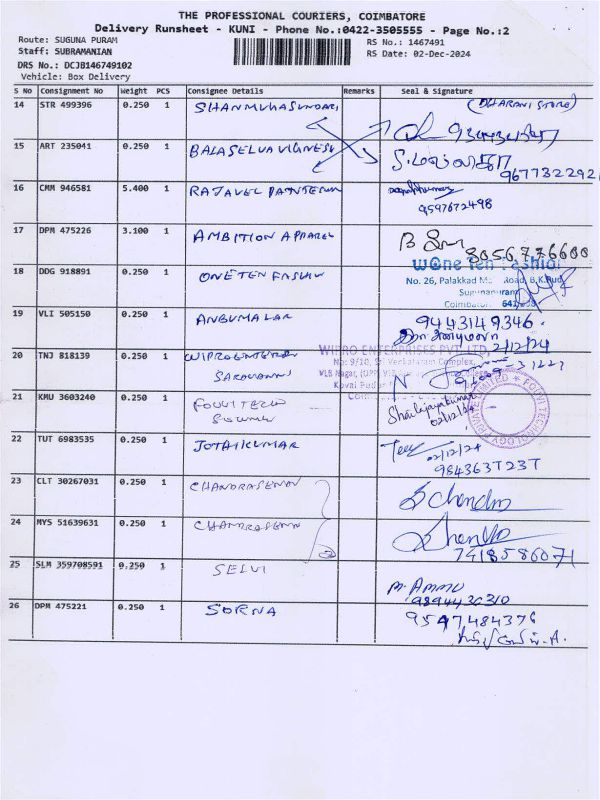 THE PROFESSIONAL COURIERS, COIMBATORE
Delivery Runsheet - KUNI - Phone No.:0422-3505555 - Page No.:2
Route: SUGUNA PURAM RS No.: 1467491
Staff: SUBRAMANIAN RS Date: 02-Dec-2024
DRS No.: DCJB146749102
Vehicle: Box Delivery
S No Consignment No Weight PCS Consignee Details Remarks Seal & Signature
14 STR 499396 0.250 1 SHANMUHASUNDARI (DHARANI STORE)
15 ART 235041 0.250 1 BALASELVAVIGNESH
9677322921
16 CMM 946581 5.400 1 RAJAVEL
9597672498
17 DPM 475226 3.100 1 AMBITION APPAREL
8056776600
18 DDG 918891 0.250 1 ONETEN
wOne Ten Fashion
No. 26, Palakkad Road, B.K.Pudur
Sugunapuram
Coimbatore
19 VLI 505150 0.250 1 ANBUMALAR 9443149346
2/12/24
20 TNJ 818139 0.250 1
WIPRO ENTERPRISES PVT LTD
No: 9/10, Sri Venkatesan Complex,
VLB Nagar,
Kovai Pudur
21 KMU 3603240 0.250 1
02/12/24
22 TUT 6983535 0.250 1 JOTHIKUMAR
02/12/24
23 CLT 30267031 0.250 1 CHANDRASENAN
24 MYS 51639631 0.250 1 CHANDRASENAN
7418586071
25 SLM 359708591 0.250 1 SELVI M. AMMU
9894430310
26 DPM 475221 0.250 1 SORNA 9547484376